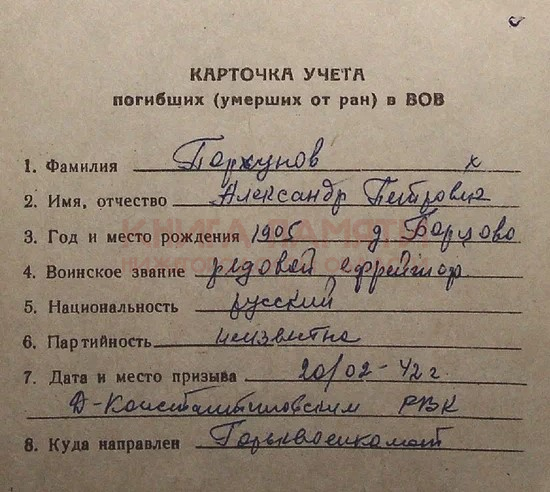 КАРТОЧКА УЧЕТА
погибших (умерших от ран) в ВОВ
1. Фамилия Поржунов х
2. Имя, отчество Александр Петрович
3. Год и место рождения 1905 д. Барцово
КНИГА ПАМЯТИ
4. Воинское звание рядовой ефрейтор
5. Национальность русский
6. Партийность неизвестна
7. Дата и место призыва 20/02-42 г.
Д-Константиновским РВК
8. Куда направлен Горьквоенкомат